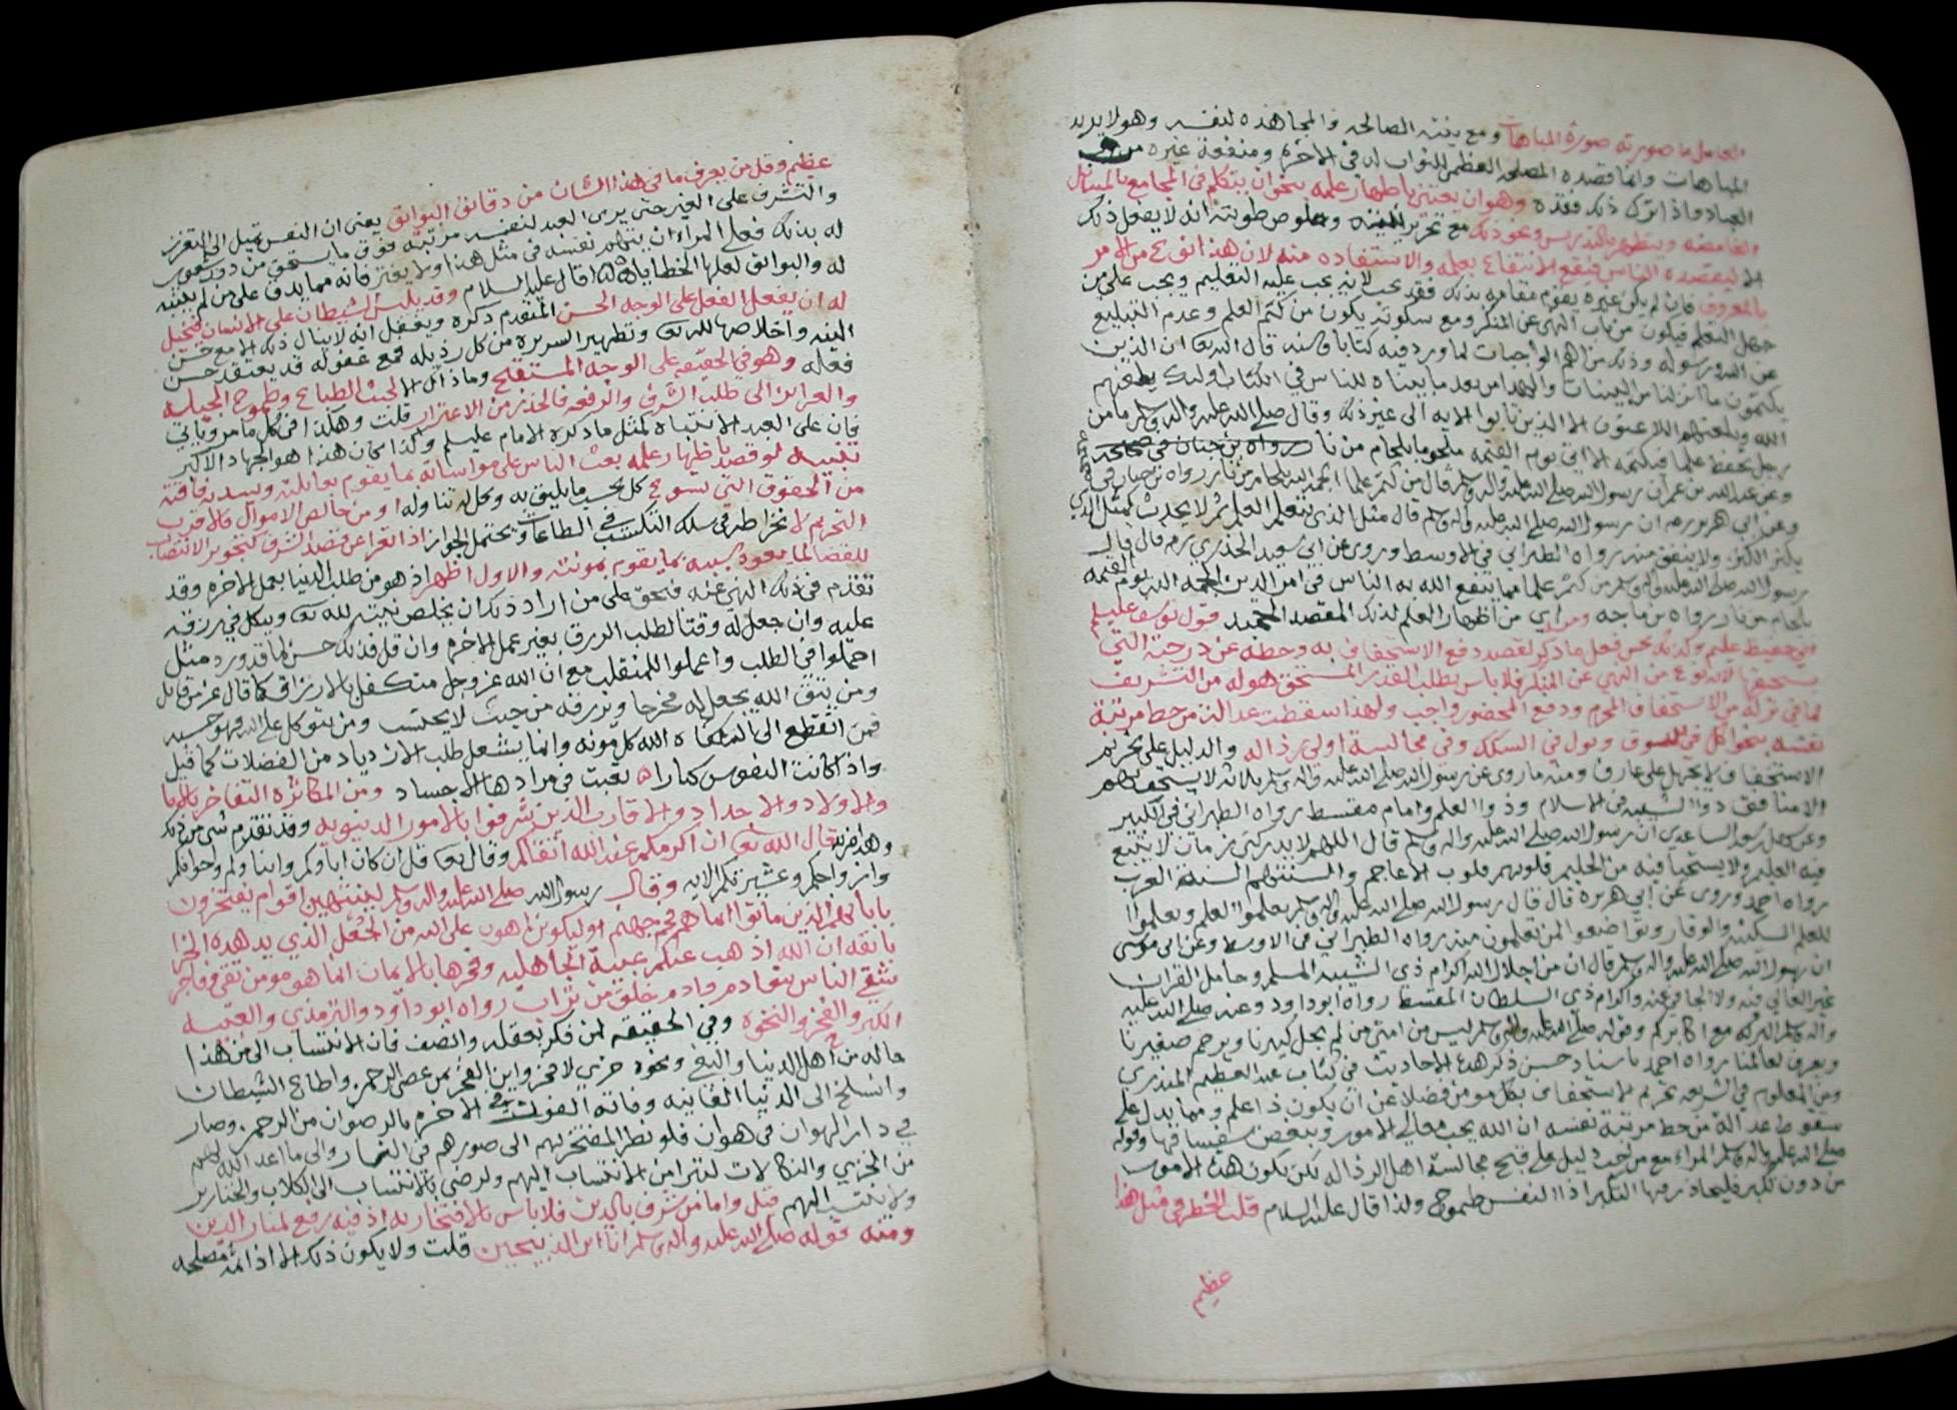 العامل ما صورته صورة المباهات ومع نيته الصالحه والمجاهده لنفسه وهو لا يريد
المباهات وانما قصده المصلحه العظمى للثواب له في الاخرة ومنفعة غيره من
العباد فاذا ترك ذلك فقده وهو ان يعتني باظهار علمه بنحو ان يتكلم في المجامع بالمسائل
الغامضه ويتظهر بالتدريس ونحو ذلك مع تحرير نيته وخلوص طويته انه لا يفعل ذلك
الا ليقصده الناس فيقع الانتفاع بعلمه والاستفاده منه لان هذا نوع من الامر
بالمعروف فان لم يكن غيره يقوم مقامه بذلك فقد يجب لانه يجب عليه التعليم ويجب على من
جهل التعلم فيكون من باب النهي عن المنكر ومع سكوته يكون من كتم العلم وعدم التبليغ
عن الله ورسوله وذلك من اهم الواجبات لما ورد فيه كتابا وسنه قال الله تعا ان الذين
يكتمون ما انزلنا من البينات والهدى من بعد ما بيناه للناس في الكتاب اولئك يلعنهم
الله ويلعنهم اللاعنون الا الذين تابوا الايه الى غير ذلك وقال صلى الله عليه واله وسلم ما من
رجل يحفظ علما فيكتمه الا اتى يوم القيمه ملجوما بلجام من نار
وعن عبد الله بن عمر ان رسول الله صلى الله عليه واله وسلم قال من كتم علما الجمه الله بلجام من نار رواه بن حبان في
وعن ابي هريره ان رسول الله صلى الله عليه واله وسلم قال مثل الذي يتعلم العلم ثم لا يحدث كمثل الذي
يكنز الكنز ولا ينفق منه رواه الطبراني في الاوسط وروي عن ابي سعيد الخدري قال قال
رسول الله صلى الله عليه واله وسلم من كتم علما مما ينفع الله به الناس في امر الدين الجمه الله يوم القيمه
بلجام من نار رواه بن ماجه ومن اظهار العلم لذلك المقصد الحميد قول يوسف عليلم
اني حفيظ عليم وكذلك يحسن فعل ما ذكر لقصد دفع الاستخفاف به وحطه عن درجته التي
يستحقها لانه نوع من النهي عن المنكر فلا باس بطلب القدر المستحق هو له من التشريف
لما في تركه من الاستخفاف المحرم ودفع المحضور واجب ولهذا سقطت عدالة من حط مرتبة
نفسه بنحو اكل في السوق وبول في السكك وفي مجالسة اولي رذاله والدليل على تحريم
الاستخفاف ومنه ما روي عن رسول الله صلى الله عليه واله وسلم ثلاثه لا يستخف بهم
الا منافق ذو الشيبه في الاسلام وذوا العلم وامام مقسط رواه الطبراني في الكبير
وعن سهل بن سعد الساعدي ان رسول الله صلى الله عليه واله وسلم قال اللهم لا يدركني زمان لا يتبع
فيه العليم ولا يستحيا فيه من الحليم قلوبهم قلوب الاعاجم والسنتهم السنة العرب
رواه احمد وروي عن ابي هريره قال قال رسول الله صلى الله عليه واله وسلم تعلموا العلم وتعلموا
للعلم السكينه والوقار وتواضعوا لمن تعلمون منه رواه الطبراني في الاوسط وعن ابي موسى
ان رسول الله صلى الله عليه واله وسلم قال ان من اجلال الله اكرام ذي الشيبه المسلم وحامل القران
غير الغالي فيه ولا الجافي عنه واكرام ذي السلطان المقسط رواه ابو داود وعنه صلى الله عليه
واله وسلم البركه مع اكابركم وقوله صلى الله عليه واله وسلم ليس من امتي من لم يجل كبيرنا ويرحم صغيرنا
ويعرف لعالمنا رواه احمد باسناد حسن ذكر هذه الاحاديث في كتاب عبد العظيم المنذري
ومن المعلوم في الشريعه تحريم الاستخفاف بكل مومن فضلا عن ان يكون ذا علم ومما يدل على
سقوط عدالة من حط مرتبة نفسه ان الله يحب معالي الامور ويبغض سفسافها وقوله
صلى الله عليه واله وسلم المراء مع من احب دليل على قبح مجالسة اهل الرذاله لكن يكون هذه الامور
من دون تكبر فليحاذر فيها التكبر اذ النفس طموح ولذا قال عليه السلام قلت الخطر في مثل هذا
عظيم
عظيم وقل من يعرف ما في هذا الشان من دقائق البوائق يعني ان النفس تميل الى التعزز
والتشرف على الغير حتى يرى العبد لنفسه مرتبة فوق ما يستحق من دون شعور
له بذلك فعلى المراء ان يتهم نفسه في مثل هذا ولا يغتر فانه مما يدق على من لم يتنبه
له والبوائق لعلها الخطايا ولذا قال عليه السلام وقد يلبس الشيطان على الانسان فيخيل
له ان يفعل الفعل على الوجه الحسن المتقدم ذكره ويغفل انه لا ينال ذلك الا مع حسن
النيه واخلاصها لله تعا وتطهير السريره من كل رذيله فمع غفوله قد يعتقد حسن
فعله وهو في الحقيقه على الوجه المستقبح وماذاك الا لخبث الطباع وطموح الجبله
والغرائز الى طلب الشرف والرفعه فالحذر من الاغترار قلت وهكذا في كل ما مر وياتي
فان على العبد الانتباه لمثل ما ذكره الامام عليلم ولذا كان هذا هو الجهاد الاكبر
تنبيه لو قصد باظهار علمه بعث الناس على مواساته بما يقوم بعائلته ويسد به فاقته
من الحقوق التي تسوغ كل بحسب ما يليق به وحل له تناوله او من خالص الاموال فالاقرب
التحريم لانخراطه في سلك التكسب في الطاعات ويحتمل الجواز اذا تعرا عن قصد الشرف كتجويز الانتصاب
للقضا لما يعود بسببه بما يقوم بمونته والاول اظهر اذ هو من طلب الدنيا بعمل الاخره وقد
تقدم في ذلك النهي عنه فحق على من اراد ذلك ان يخلص نيته لله تعا ويتكل في رزقه
عليه وان جعل له وقتا لطلب الرزق بغير عمل الاخره وان قل فذلك حسن لما قد ورد مثل
اجملوا في الطلب واعملوا للمنقلب مع ان الله عز وجل متكفل بالارزاق كما قال عز من قائل
ومن يتق الله يجعل له مخرجا ويرزقه من حيث لا يحتسب ومن يتوكل على الله فهو حسبه
فمن انقطع الى الله كفاه الله كل مونه وانما يشغل طلب الازدياد من الفضلات كما قيل
واذا كانت النفوس كبارا تعبت في مرادها الاجساد ومن المكاثره التفاخر بالابا
والاولاد والاجداد والاقارب الذين شرفوا بالامور الدنيويه وقد تقدم شي من ذلك
وهذا منه قال الله تعا ان اكرمكم عند الله اتقاكم وقال تعا قل ان كان اباوكم وابناوكم واخوانكم
وازواجكم وعشيرتكم الايه وقال رسول الله صلى الله عليه واله وسلم لينتهين اقوام يفتخرون
بابائهم الذين ماتوا انما هم فحم جهنم او ليكونن اهون على الله من الجعل الذي يدهده الخرا
بانفه ان الله اذهب عنكم عبية الجاهليه وفخرها بالابا انما هو مومن تقي وفاجر
شقي الناس بنوا ادم وادم خلق من تراب رواه ابو داود والترمذي والعبيه
الكبر والفخر والنخوه وفي الحقيقه لمن فكر بعقله وانصف فان الانتساب الى من هذا
حاله من اهل الدنيا والبغي ونحوه خزي لا فخر واين الفخر بمن عصى الرحمن واطاع الشيطان
وانسلخ الى الدنيا الفانيه وفاته الفوز في الاخره بالرضوان من الرحمن وصار
في دار الهوان في هوان فلو نظر المفتخر بهم الى صورهم في النار والى ما اعد الله لهم
من الخزي والنكالات لتبرا من الانتساب اليهم ولرضي بالانتساب الى الكلاب والخنازير
ولا ينتسب اليهم قيل واما من شرف بالدين فلا باس بالافتخار به اذ فيه رفع لمنار الدين
ومنه قوله صلى الله عليه واله وسلم انا ابن الذبيحين قلت ولا يكون ذلك الا اذا مصلحه